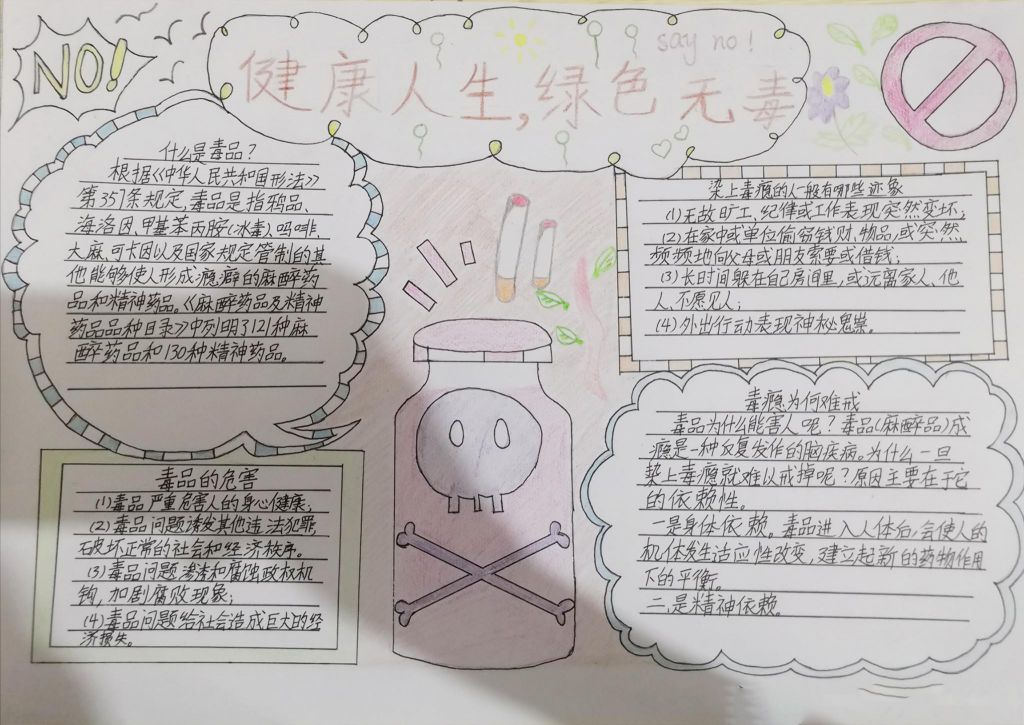 NO!
say no!
健康人生,绿色无毒
什么是毒品?
根据《中华人民共和国形法》
第357条规定,毒品是指鸦品、
海洛因、甲基苯丙胺(冰毒)、吗啡、
大麻、可卡因以及国家规定管制的其
他能够使人形成瘾癖的麻醉药
品和精神药品。《麻醉药品及精神
药品品种目录》中列明了121种麻
醉药品和130种精神药品。
毒品的危害
(1)毒品严重危害人的身心健康;
(2)毒品问题诱发其他违法犯罪,
破坏正常的社会和经济秩序。
(3)毒品问题渗透和腐蚀政权机
钩,加剧腐败现象;
(4)毒品问题给社会造成巨大的经
济损失。
染上毒瘾的人一般有哪些迹象
(1)无故旷工,纪律或工作表现突然变坏;
(2)在家中或单位偷窃钱财、物品,或突然
频频地向父母或朋友索要或借钱;
(3)长时间躲在自己房间里,或远离家人、他
人,不愿见人;
(4)外出行动表现神秘鬼祟。
毒瘾为何难戒
毒品为什么能害人呢?毒品(麻醉品)成
瘾是一种反复发作的脑疾病。为什么一旦
染上毒瘾就难以戒掉呢?原因主要在于它
的依赖性。
一是身体依赖。毒品进入人体后,会使人的
机体发生适应性改变,建立起新的药物作用
下的平衡。
二是精神依赖。